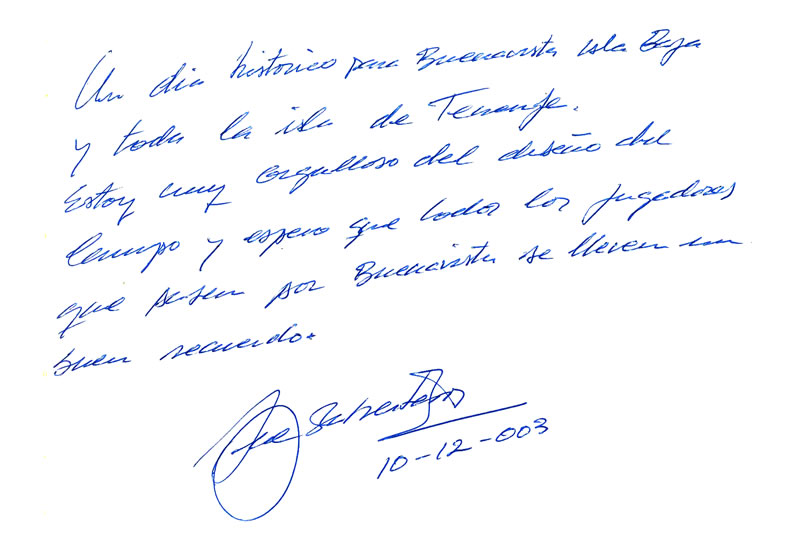 Un dia historico para Buenavista isla Baja
y toda la isla de Tenerife.
Estoy muy orgulloso del diseño del
Campo y espero que todos los jugadores
que pasen por Buenavista se lleven un
buen recuerdo.
10-12-003